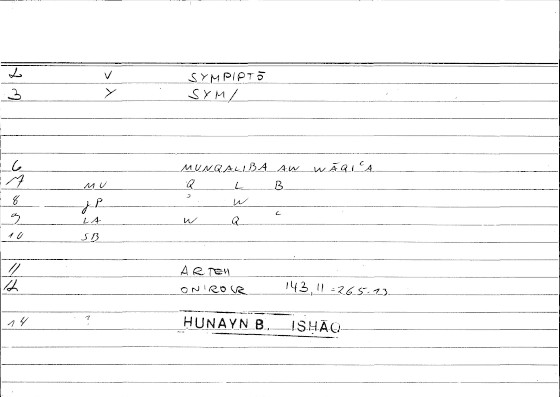 2 V SYMPIPTŌ
3 Y SYM/
6 MUNQALIBA AW WĀQIʿA
7 MU Q L B
8 JP ʾ W
9 LA W Q ʿ
10 SB
11 ARTEM
12 ONIROCR 143,11 = 265.13
14 1 HUNAYN B. ISHĀQ